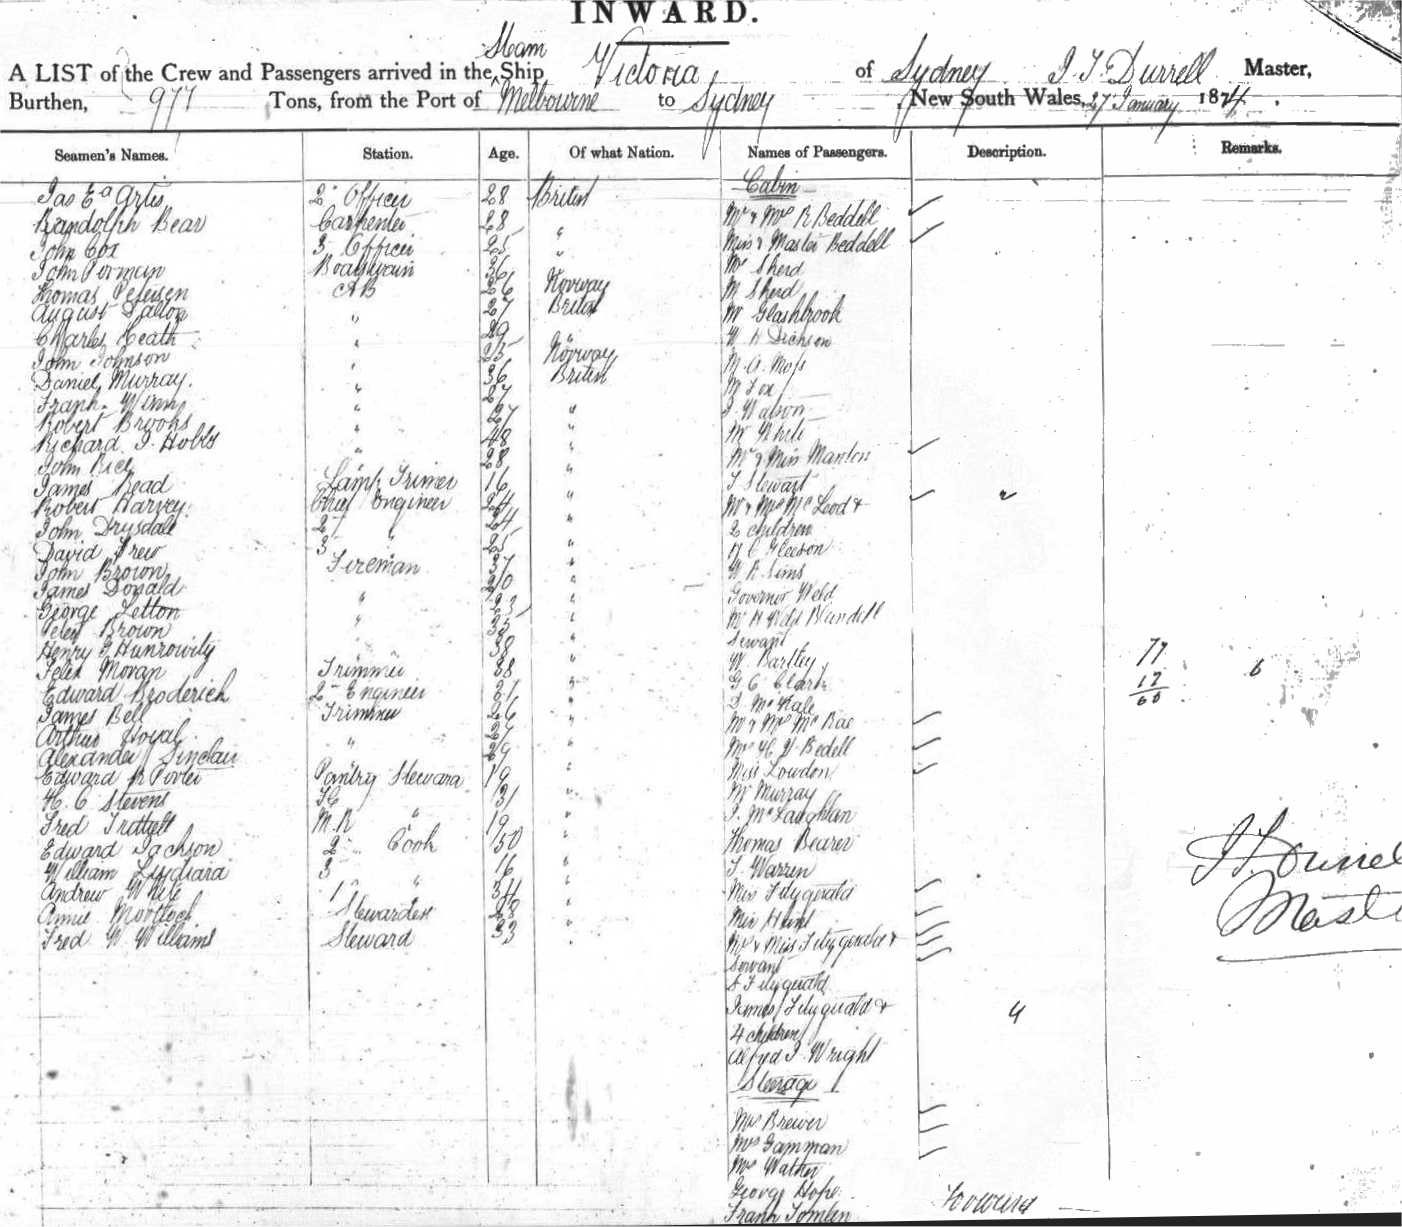 INWARD.
Steam
A LIST of the Crew and Passengers arrived in the Ship Victoria of Sydney J. T. Durrell Master,
Burthen, 977 Tons, from the Port of Melbourne to Sydney New South Wales, 27 January 1874.
Seamen's Names. Station. Age. Of what Nation. Names of Passengers. Description. Remarks.
Cabin
Jas Ea Artis 2" Officer 28 British
Mr & Mrs R Beddell
Randolph Bear Carpenter 28 "
Miss & Master Beddell
John Cox 3 Officer 25 "
Mr Sherd
John Perman Boatswain 36
M Sherd
Thomas Petersen AB 26 Norway
August Dalton " 27 British
Mr Glashbrook
Charles Heath " 29 "
W R Dickson
John Johnson " 25 Norway
M. A. Moss
Daniel Murray. " 36 British
M Fox
Frank " 27 "
J. Watson
Robert Brooks " 27 "
Mr White
Richard J. Hobbs " 48 "
Mr & Miss Manton
John Rice " 28 "
James Read Lamp Trimer 16 "
J Stewart
Robert Harvey. Chief Engineer 24 "
Mr & Mrs McLeod &
2 children
John Drysdale 2 " 24 "
David Drew 3 " 25 "
H C Gleeson
John Brown Fireman 37 "
W R Sims
James Donald 30 "
Governor Weld
George Letton " 23 "
Mr H Weld Blundell
Servant
Peter Brown " 35 "
Henry J 38 "
W. Bartley
77
17
60
6
Felix Moran Trimmer 38 "
G. C. Clark
Edward Broderick 2" Engineer 31 "
D McHale
James Bell Trimmer 26 "
Mr & Mrs McRae
Arthur Hoyal 27 "
Mrs H. W. Bedell
Alexander Sinclair " 29 "
Miss Lowdon
Edward Porter Pantry Steward 19 "
Mr Murray
H. C Stevens 31 "
J. McLaughlan
Fred M.R " 19 "
Thomas Bearer
Edward Jackson 2" Cook 50 "
J. Warren
William 3 " 16 "
Miss Fitzgerald
Andrew White 1" " 34 "
Miss Hunt
Annie Stewardess 28 "
Mrs & Miss Fitzgerald &
Servant
Fred W. Williams Steward 33 "
S Fitzgerald
James Fitzgerald & 4
4 children
Alfred J. Wright
Steerage
Mrs Brewer
Mrs Gamman
Mrs
George Hope
Frank Tomlin
Forward
J. T. Durrell
Master